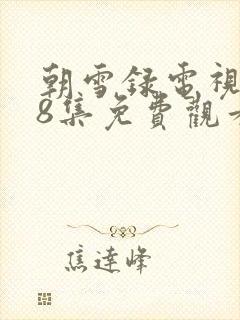 朝雪録電視
8集免費觀看
焦達峰